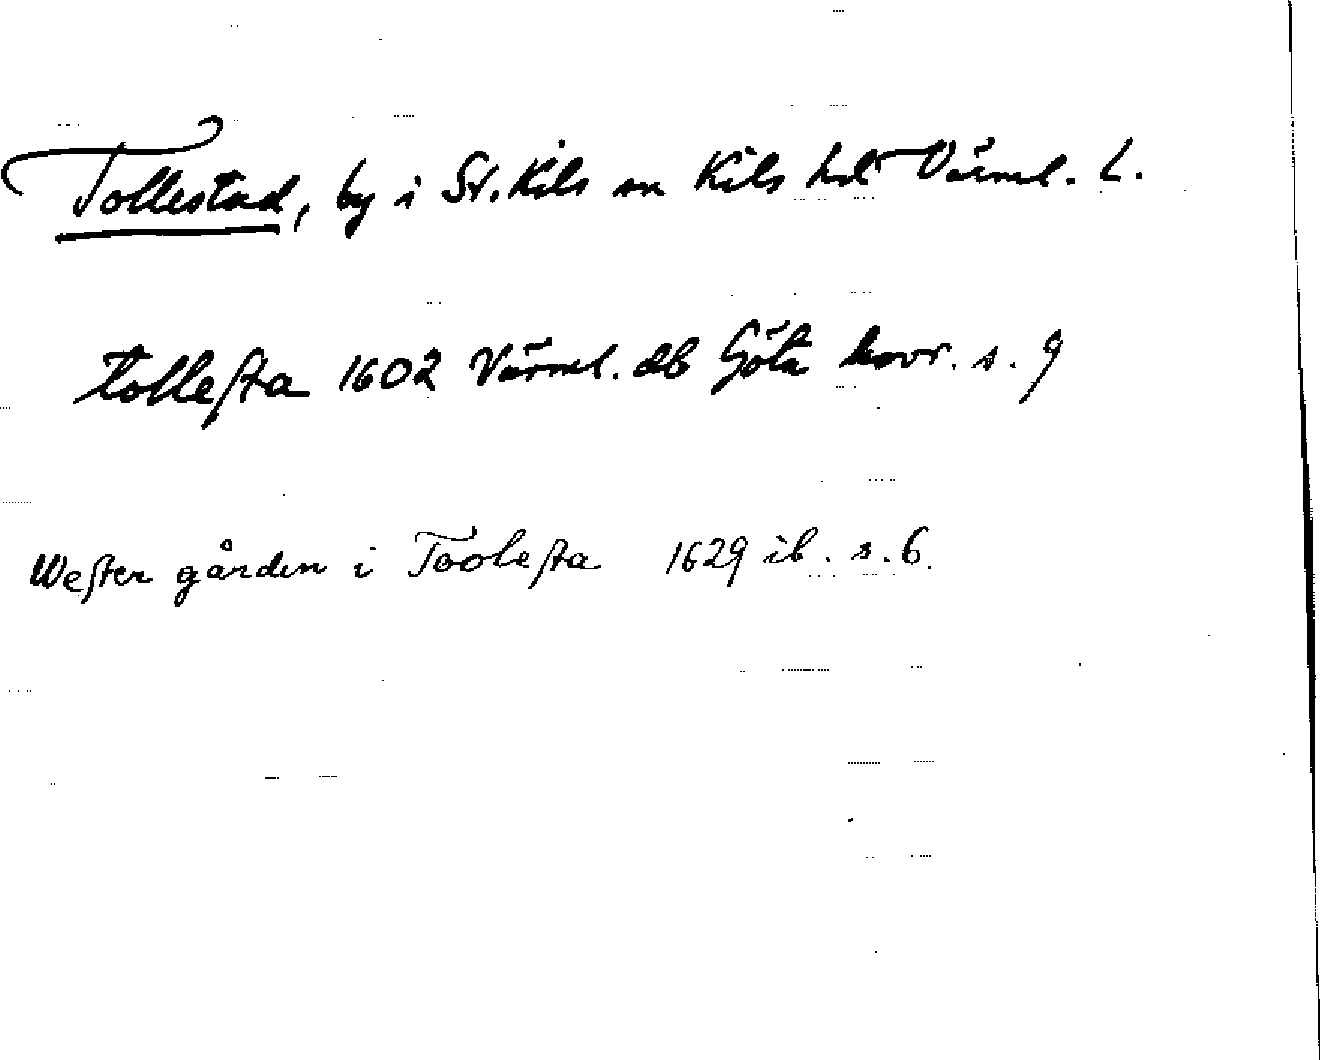 Tollestad, by i St. Kils sn Kils hd Värml. L.
tolleſta 1602 Värml. db Göta hovr. s. 9
Weſter gården i Tooleſta 1629 ib. s. 6.